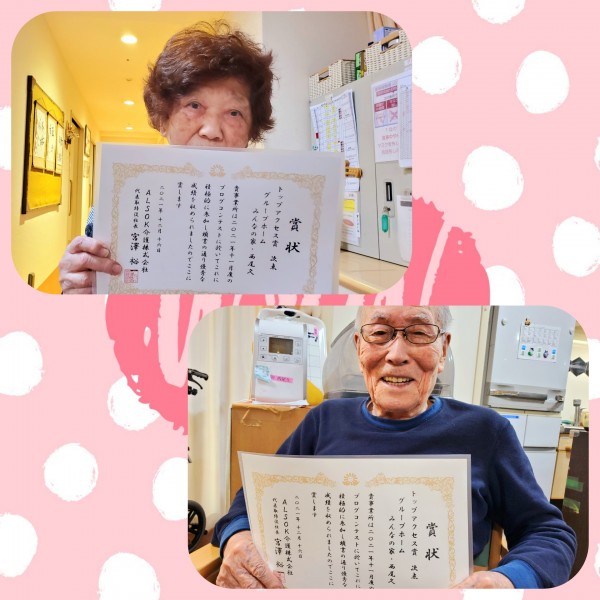 賞状
トップアクセス賞 次点
グループホーム
みんなの家・西尾久
貴事業所は二〇二一年十一月度の
ブログコンテストに於いてこれに
積極的に参加し頭書の通り優秀な
成績を収められましたのでここに
賞します
二〇二一年十二月十六日
ALSOK介護株式会社
代表取締役社長 宮澤 裕一
賞状
トップアクセス賞 次点
グループホーム
みんなの家・西尾久
貴事業所は二〇二一年十一月度の
ブログコンテストに於いてこれに
積極的に参加し頭書の通り優秀な
成績を収められましたのでここに
賞します
二〇二一年十二月十六日
ALSOK介護株式会社
代表取締役社長 宮澤 裕一